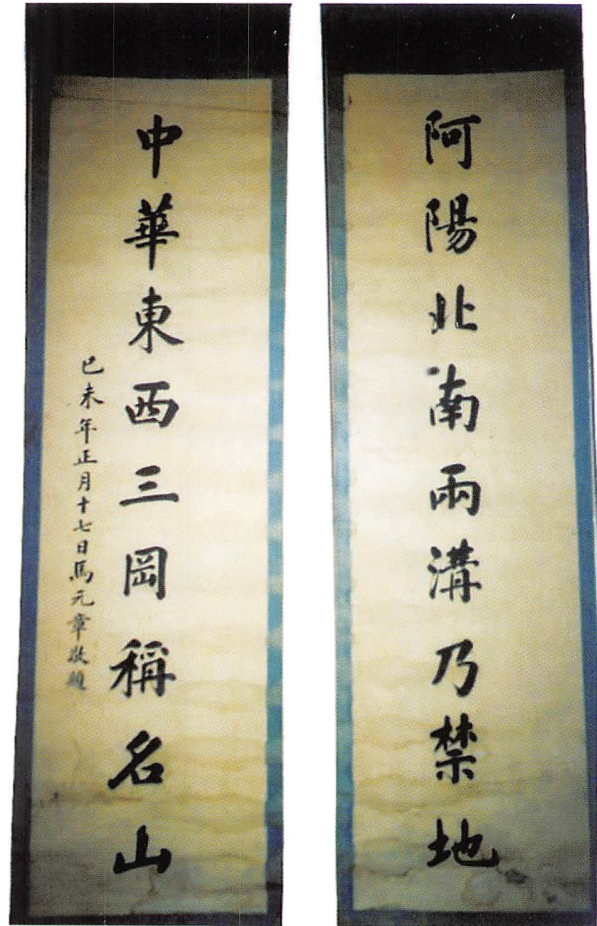 阿陽北南兩溝乃禁地
中華東西三岡稱名山
己未年正月十七日馬元章敬題